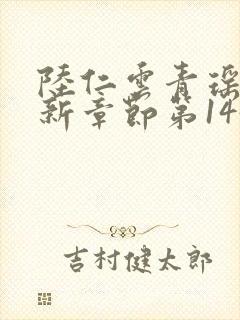 陸仁雲青瑶
新章節第14
吉村健太郎